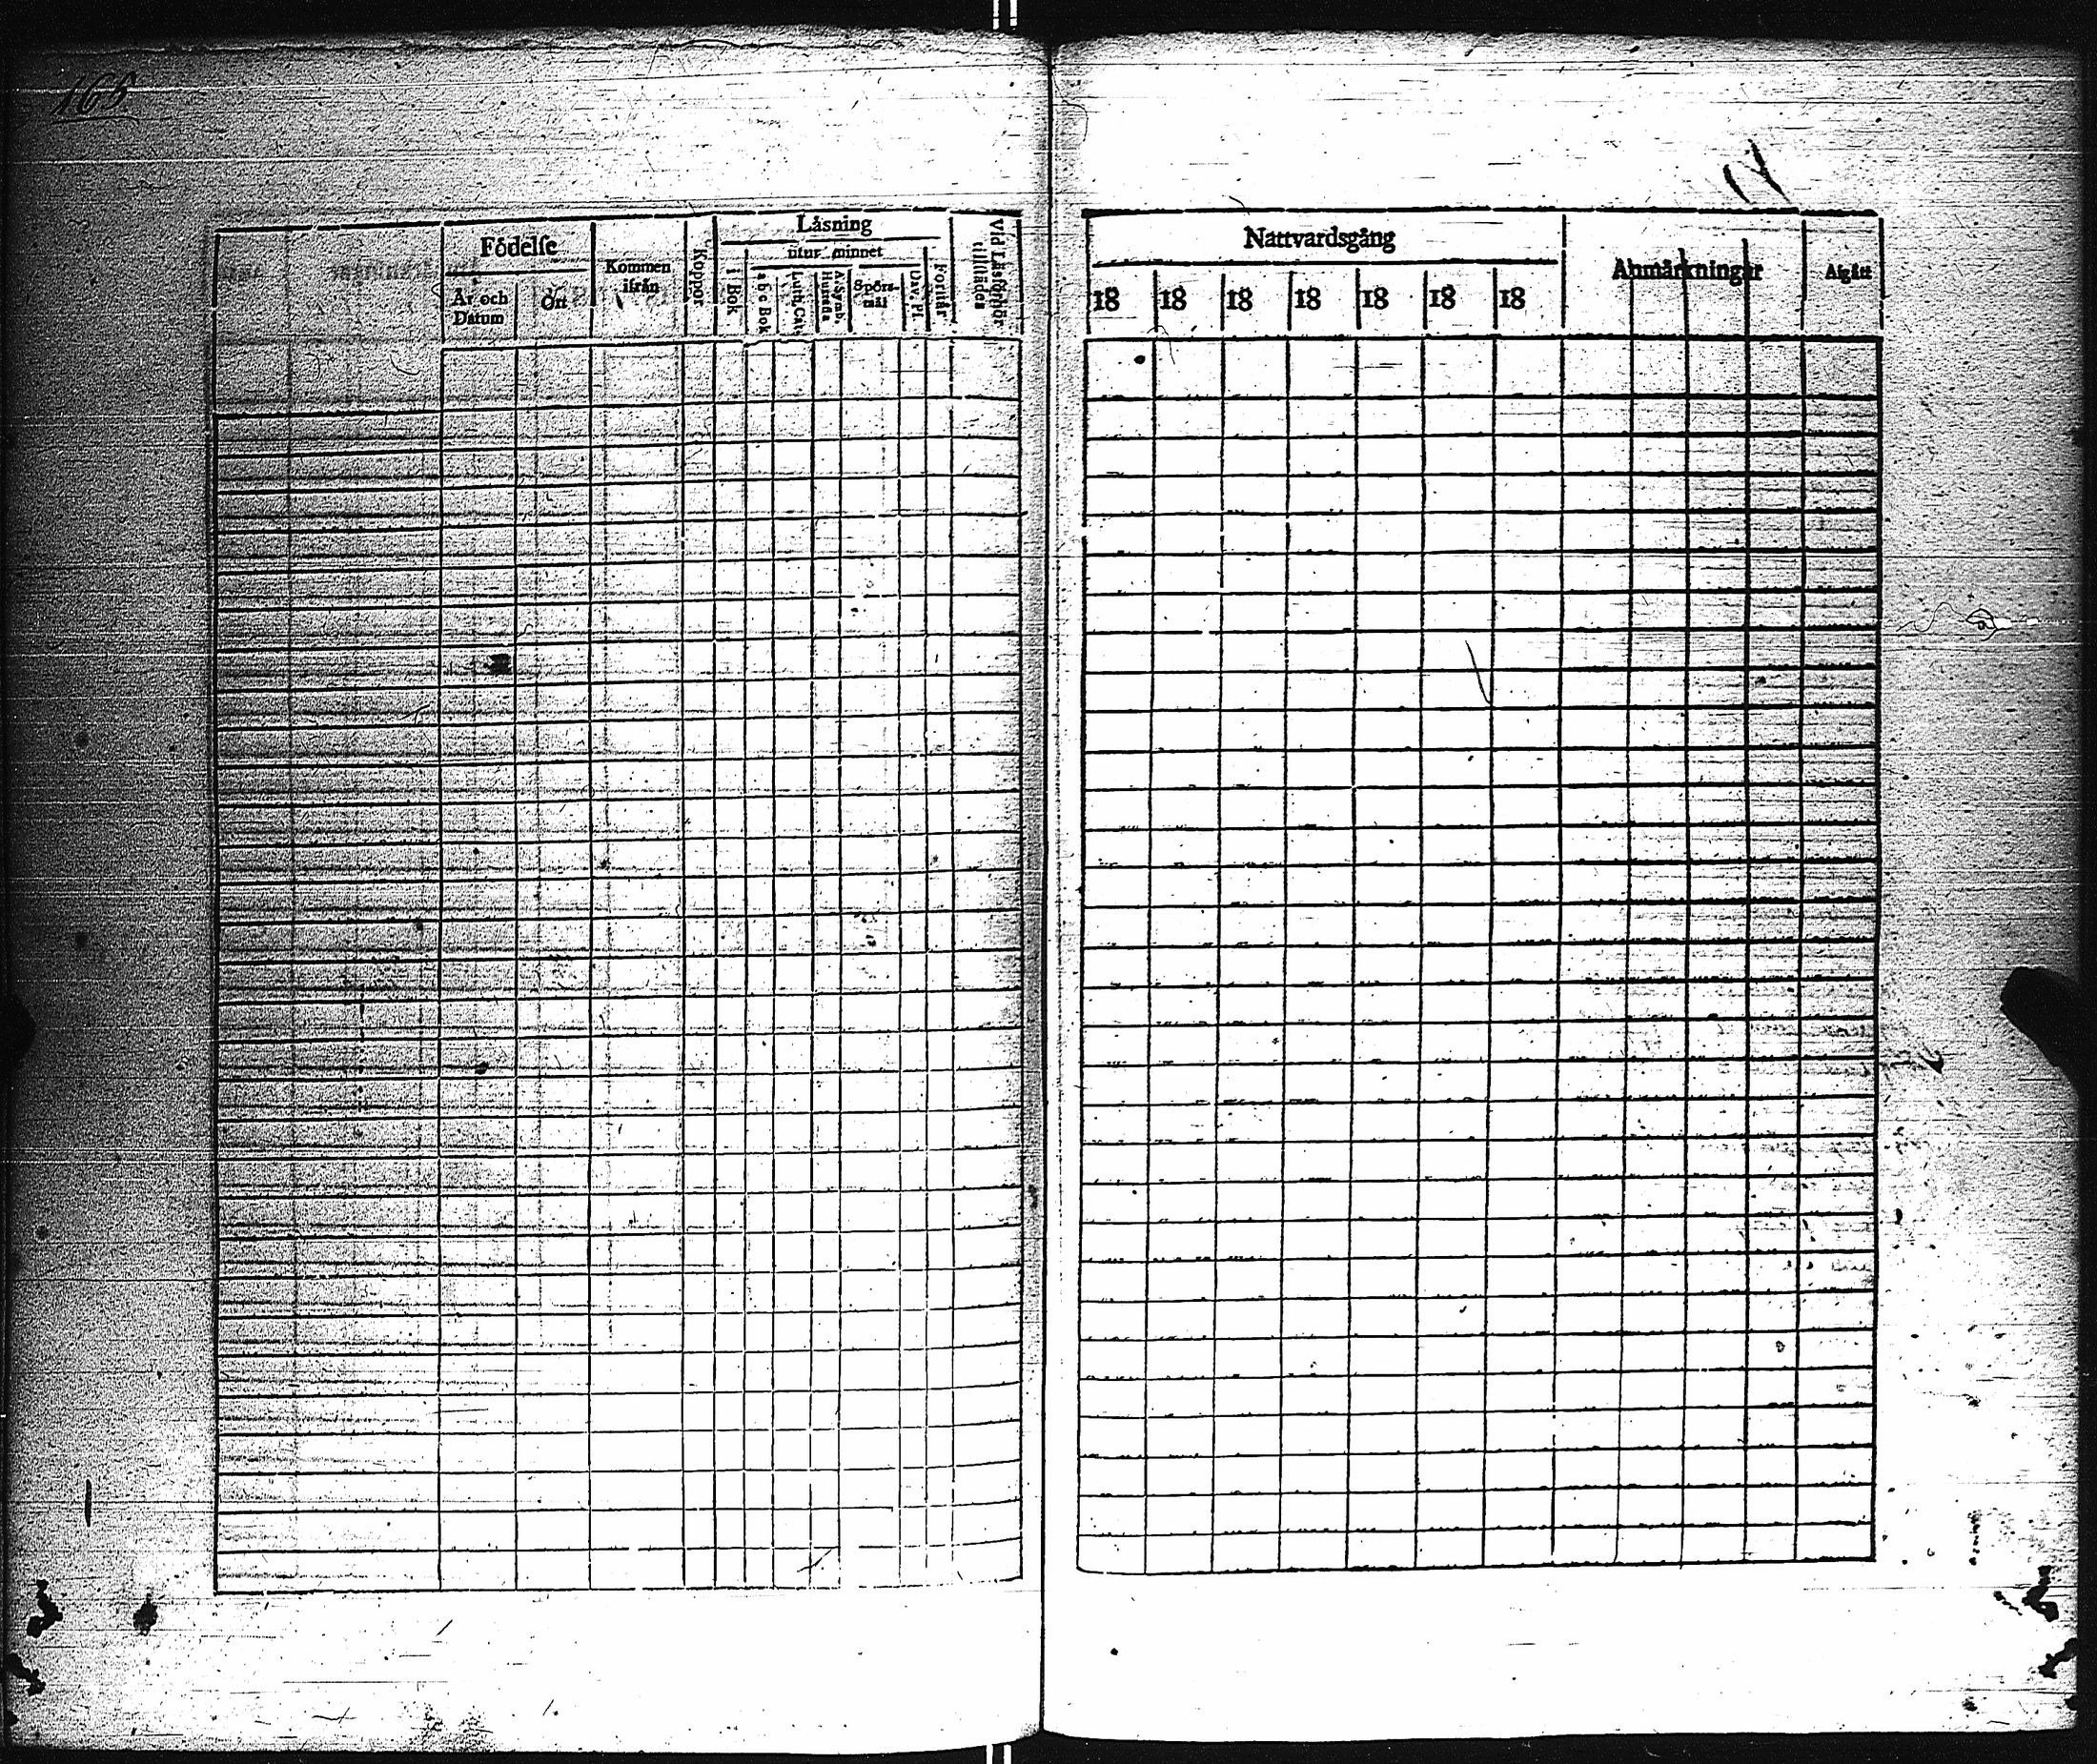 Födelse
År och Datum
Ort
Kommen ifrån
Koppor
Läsning
i Bok
utur minnet
a b c Bok
Luth. Cat.
A. Symb. Hustafla
Spörsmål
Dav. Ps.
Förstår
Vid Läsförhör tillstädes
Nattvardsgång
18 18 18 18 18 18 18
Anmärkningar
Afgått